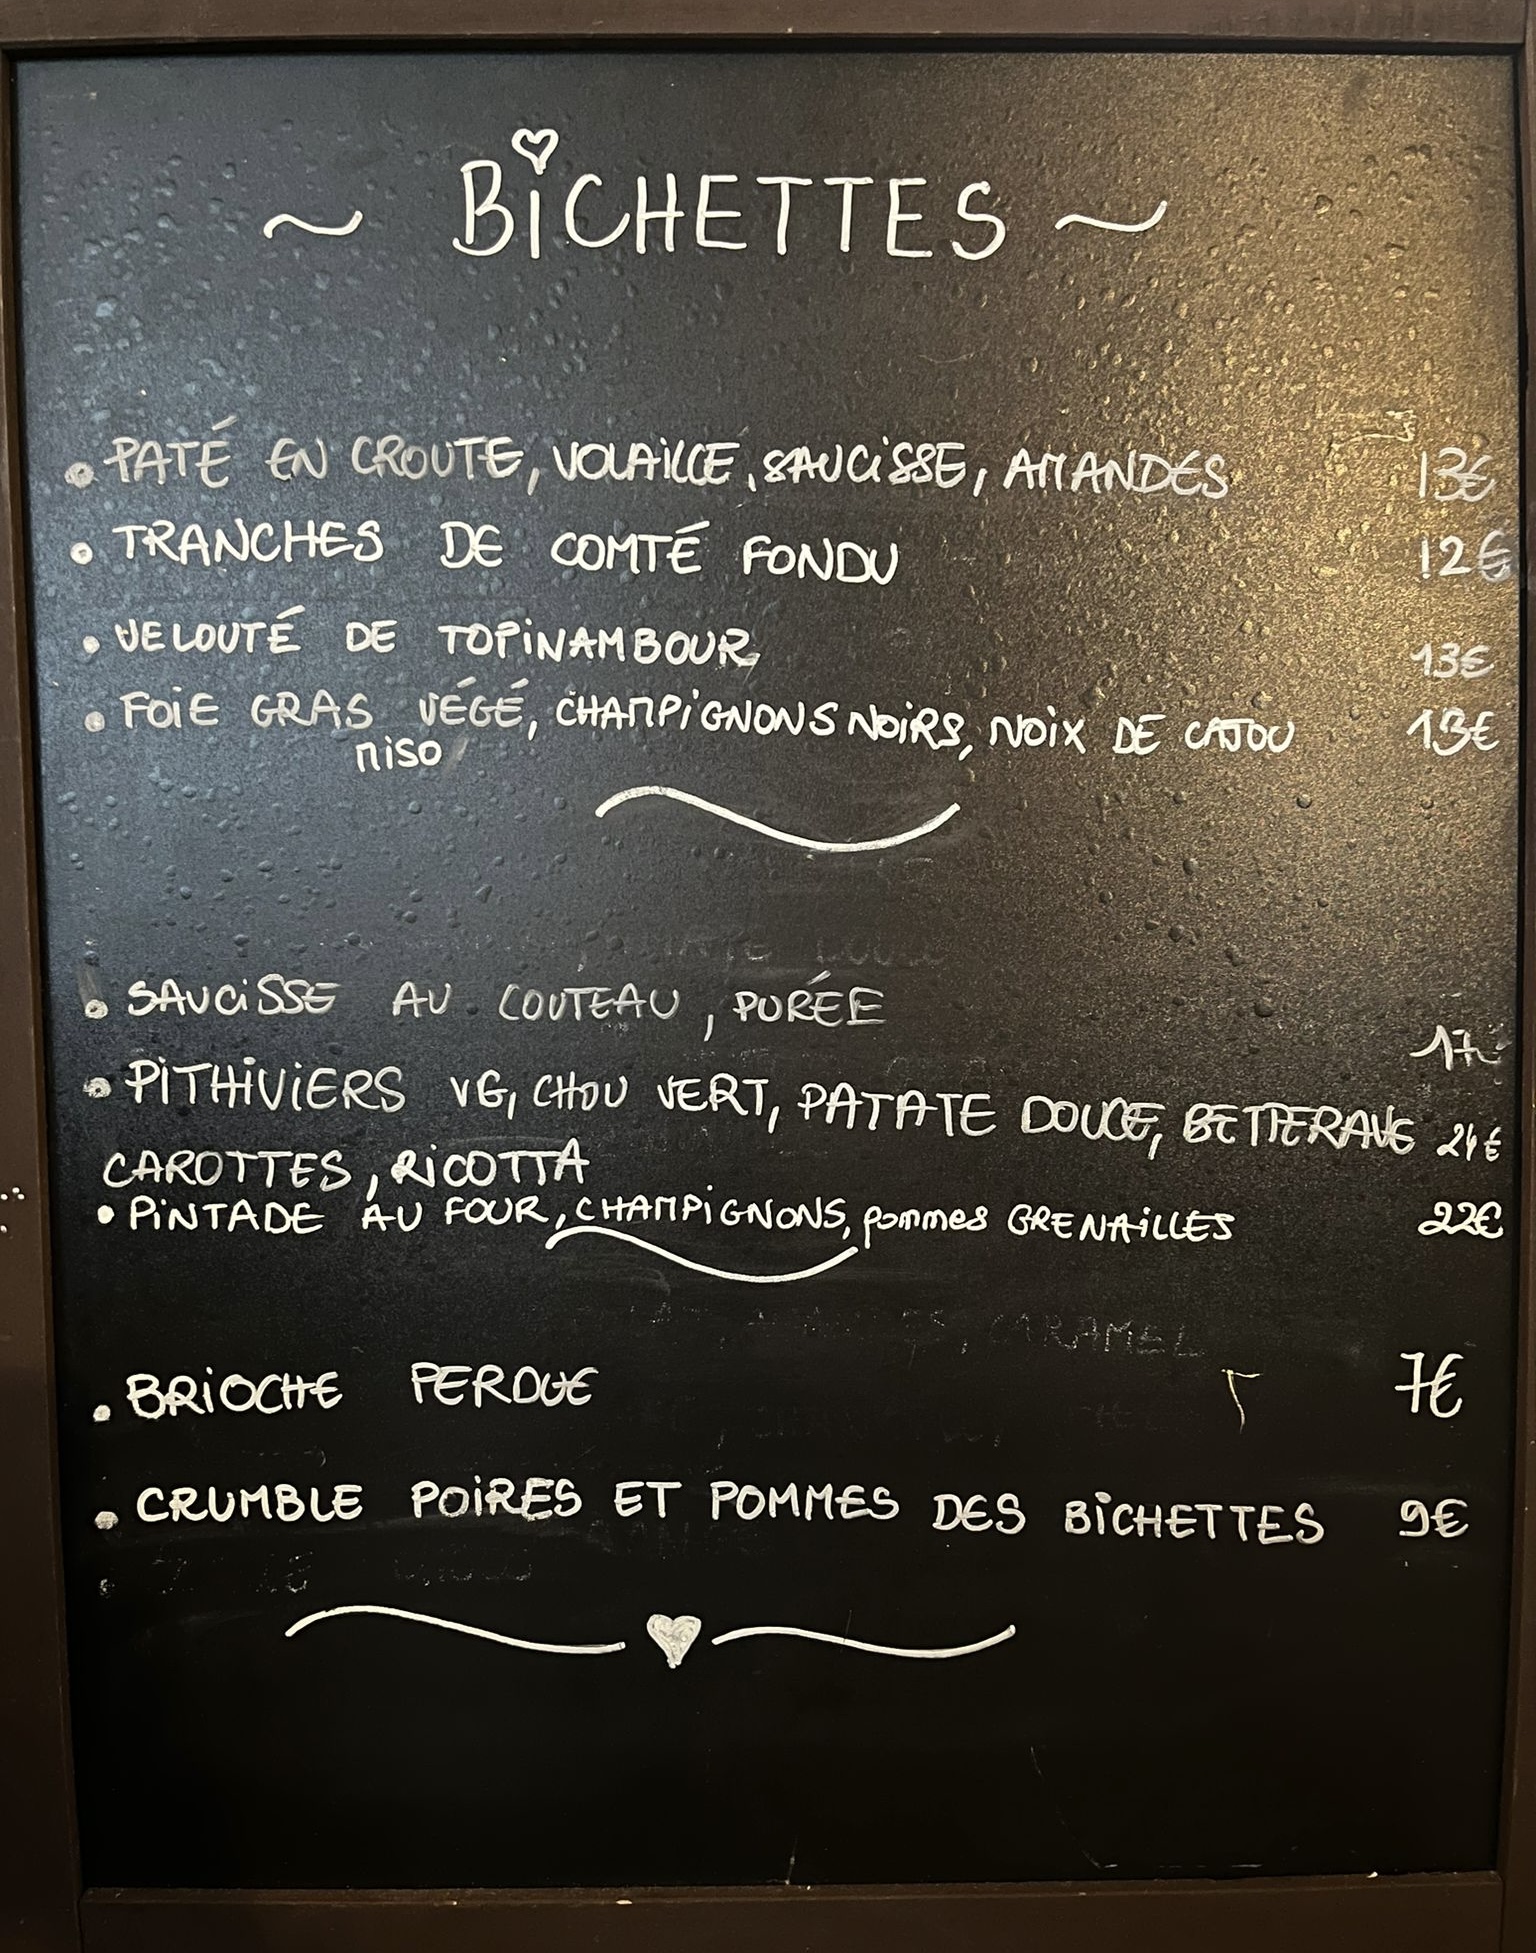 ~ BiCHETTES ~
• PATÉ EN CROUTE, VOLAILLE, SAUCISSE, AMANDES 13€
• TRANCHES DE COMTÉ FONDU 12€
• VELOUTÉ DE TOPINAMBOUR 13€
• FOIE GRAS VÉGÉ, CHAMPIGNONS NOIRS, NOIX DE CAJOU 13€
MISO
• SAUCISSE AU COUTEAU, PURÉE
17€
• PITHIVIERS VG, CHOU VERT, PATATE DOUCE, BETTERAVE 24€
CAROTTES, RICOTTA
• PINTADE AU FOUR, CHAMPIGNONS, pommes GRENAILLES 22€
CARAMEL
• BRIOCHE PERDUE 7€
• CRUMBLE POIRES ET POMMES DES BICHETTES 9€